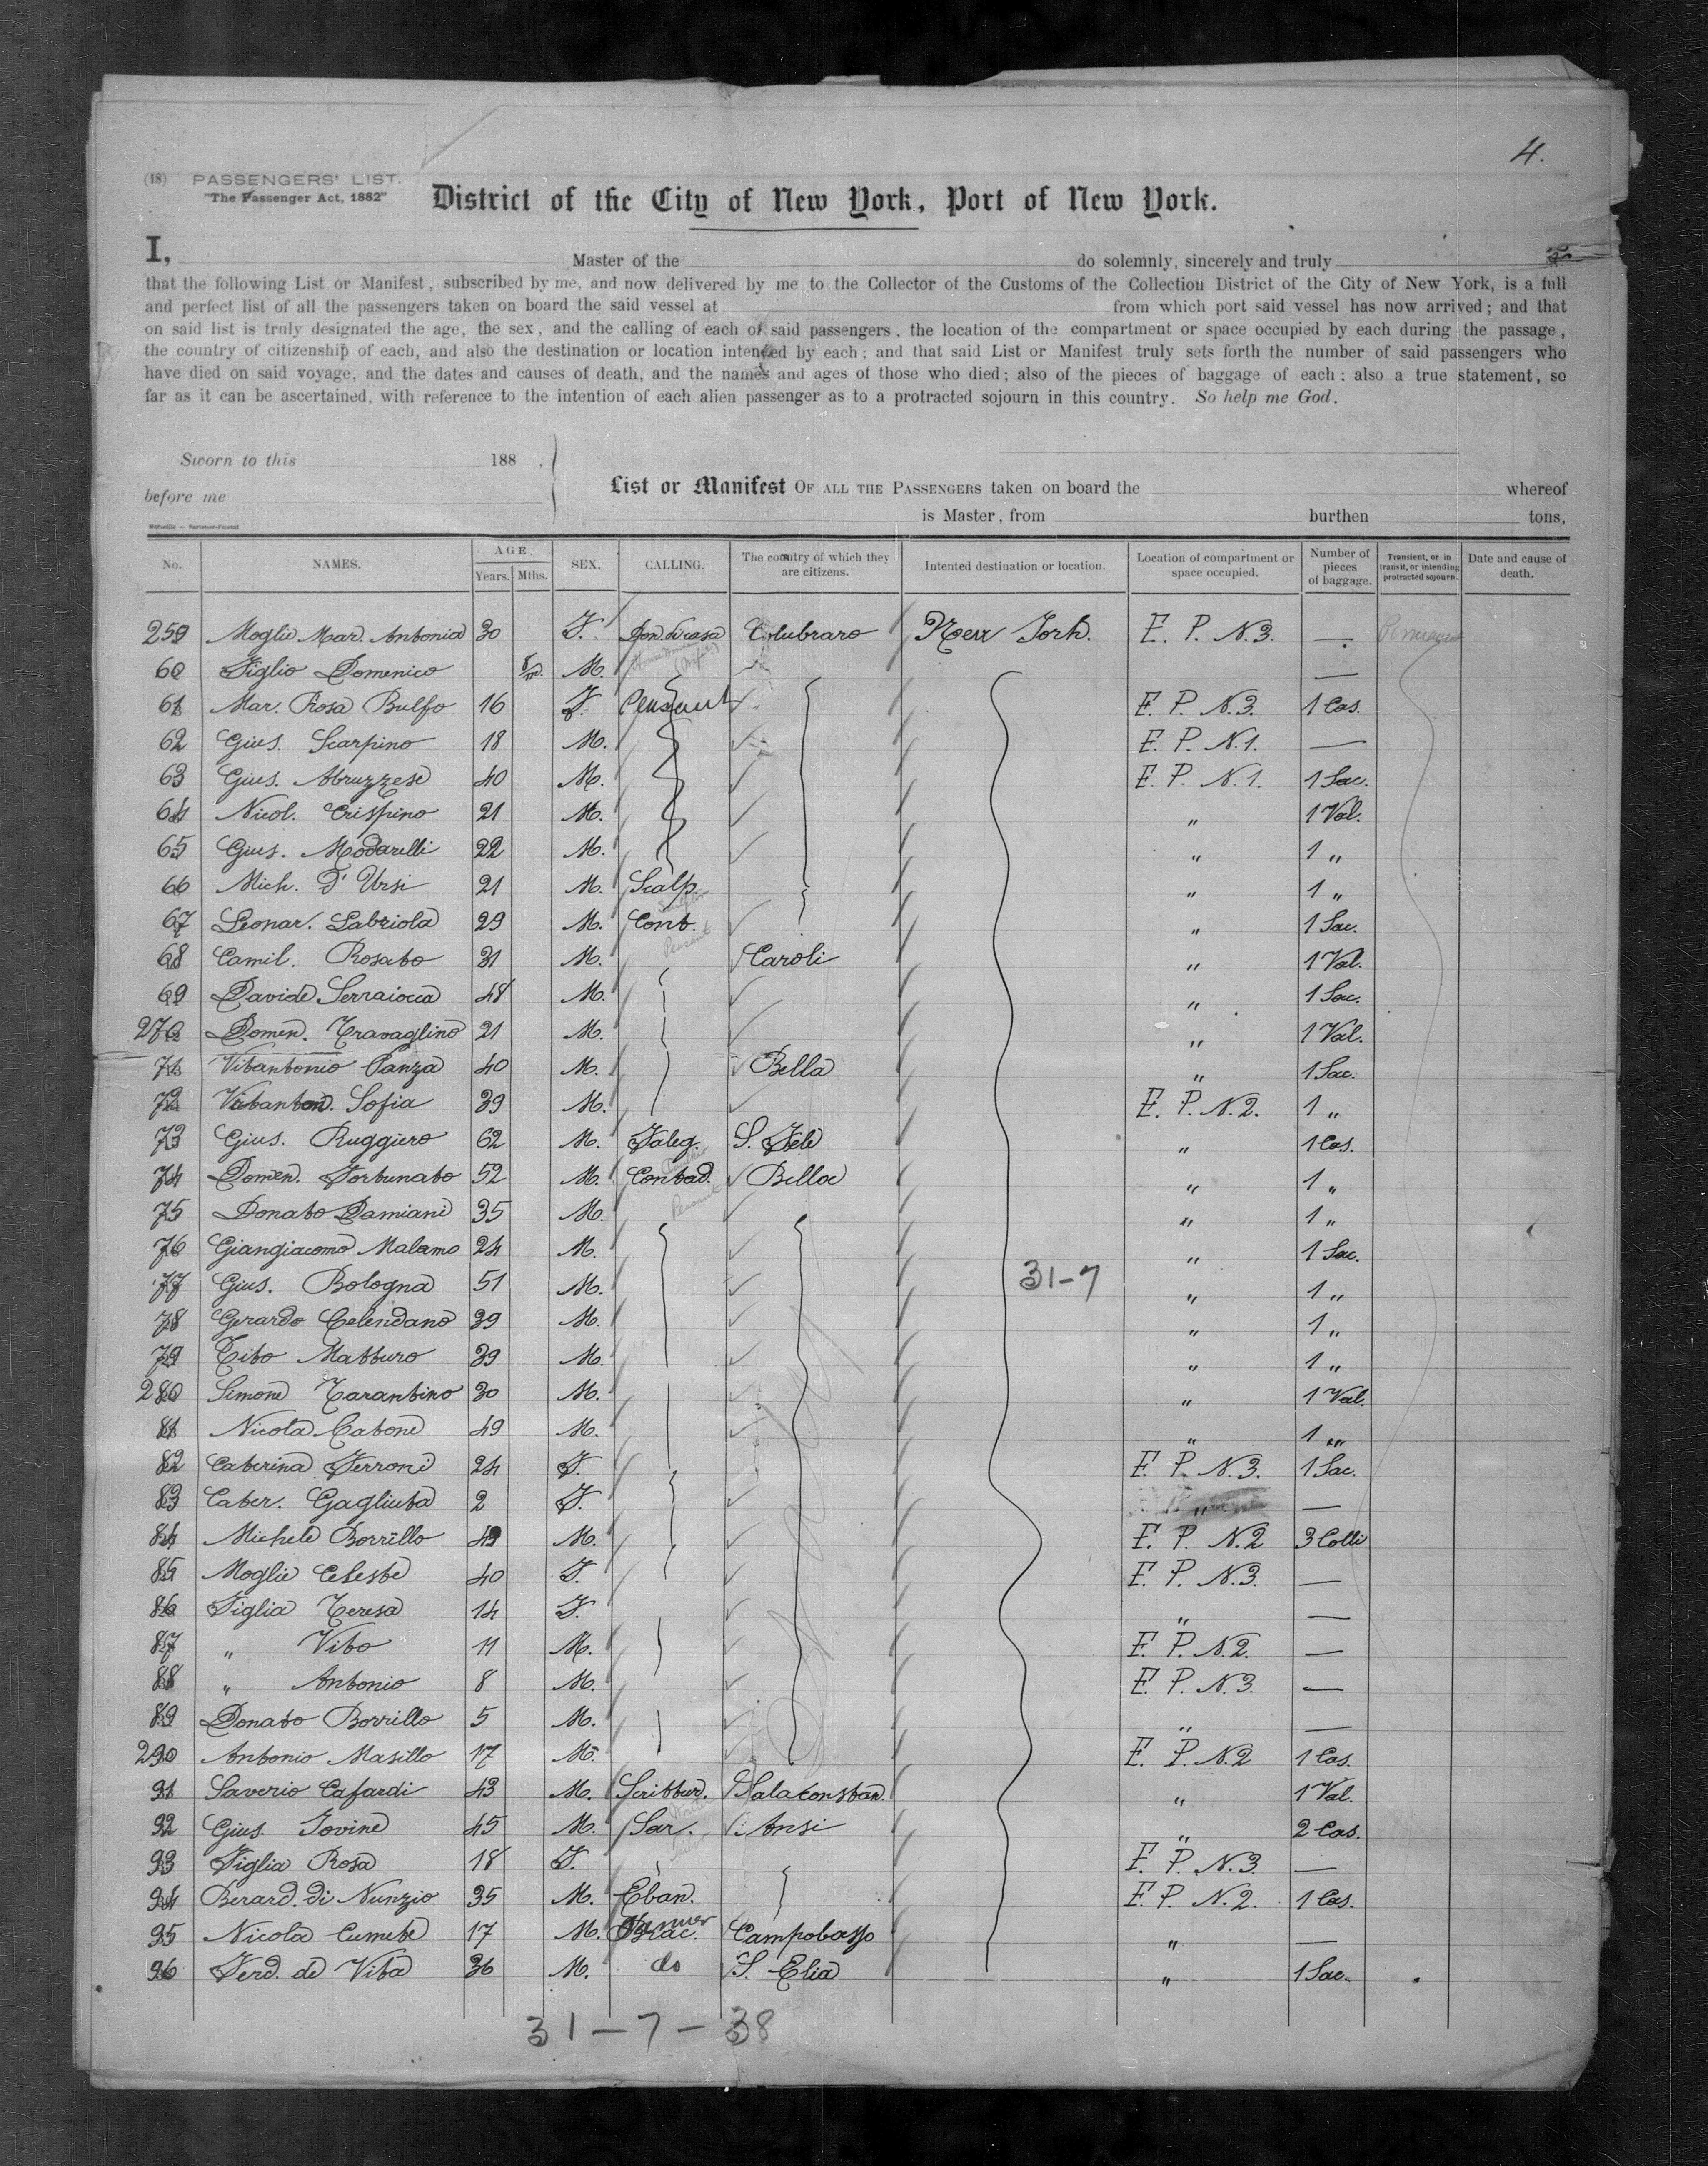 4.
(18) PASSENGERS' LIST.
"The Passenger Act, 1882"
District of the City of New York, Port of New York.
I, Master of the do solemnly, sincerely and truly
that the following List or Manifest, subscribed by me, and now delivered by me to the Collector of the Customs of the Collection District of the City of New York, is a full
and perfect list of all the passengers taken on board the said vessel at from which port said vessel has now arrived; and that
on said list is truly designated the age, the sex, and the calling of each of said passengers, the location of the compartment or space occupied by each during the passage,
the country of citizenship of each, and also the destination or location intended by each; and that said List or Manifest truly sets forth the number of said passengers who
have died on said voyage, and the dates and causes of death, and the names and ages of those who died; also of the pieces of baggage of each: also a true statement, so
far as it can be ascertained, with reference to the intention of each alien passenger as to a protracted sojourn in this country. So help me God.
Sworn to this 188 .
before me
List or Manifest OF ALL THE PASSENGERS taken on board the whereof
is Master, from burthen tons,
No. NAMES. AGE. Years. Mths. SEX. CALLING. The country of which they are citizens. Intended destination or location. Location of compartment or space occupied. Number of pieces of baggage. Transient, or in transit, or intending protracted sojourn. Date and cause of death.
259 Moglie Mar. Antonia 30 F. Don. di casa Colubraro New York. E. P. N.3. —
60 Figlio Domenico 8/m. M. —
61 Mar. Rosa Bulfo 16 F. Peasant E. P. N.3. 1 Cas.
62 Gius. Scarpino 18 M. E. P. N.1. —
63 Gius. Abruzzese 40 M. E. P. N.1. 1 Sac.
64 Nicol. Crispino 21 M. " 1 Val.
65 Gius. Modarelli 22 M. " 1 "
66 Mich. D'Ursi 21 M. Scalp. " 1 "
67 Leonar. Labriola 29 M. Cont. " 1 Sac.
68 Camil. Rosato 31 M. Peasant Caroli " 1 Val.
69 Davide Serraiocca 48 M. " 1 Sac.
270 Domen. Travaglino 21 M. " 1 Val.
71 Vitantonio Panza 40 M. Bella " 1 Sac.
72 Vitanton. Sofia 39 M. E. P. N.2. 1 "
73 Gius. Ruggiero 62 M. Faleg. S. Fele " 1 Cas.
74 Domen. Fortunato 52 M. Contad. Bella " 1 "
75 Donato Damiani 35 M. Peasant " 1 "
76 Giangiacomo Malamo 24 M. " 1 Sac.
77 Gius. Bologna 51 M. 31-7 " 1 "
78 Gerardo Celendano 39 M. " 1 "
79 Tito Matturo 39 M. " 1 "
280 Simone Tarantino 30 M. " 1 Val.
81 Nicola Catone 49 M. " 1 "
82 Caterina Ferroni 24 F. E. P. N.3. 1 Sac.
83 Cater. Gagliuta 2 F. " —
84 Michele Borrillo 43 M. E. P. N.2 3 Colli
85 Moglie Celeste 40 F. E. P. N.3. —
86 Figlia Teresa 14 F. " —
87 " Vito 11 M. E. P. N.2. —
88 " Antonio 8 M. E. P. N.3. —
89 Donato Borrillo 5 M. " —
290 Antonio Masillo 17 M. E. P. N.2 1 Cas.
91 Saverio Cafardi 43 M. Scrittur. Salaconstan. " 1 Val.
92 Gius. Iovine 45 M. Sar. Ansi " 2 Cas.
93 Figlia Rosa 18 F. E. P. N.3. —
94 Berard. di Nunzio 35 M. Eban. E. P. N.2. 1 Cas.
95 Nicola Cumete 17 M. Campobasso " —
96 Ferd. de Vita 36 M. do S. Elia " 1 Sac.
31-7-38